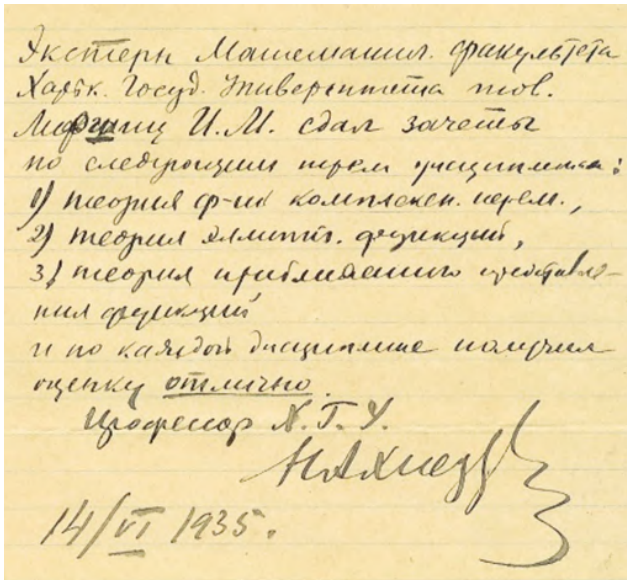 Экстерн Математич. факультета
Харьк. Госуд. Университета тов.
Лифшиц И.М. сдал зачеты
по следующим трем дисциплинам:
1) теория ф-ий комплексн. перем.,
2) теория эллипт. функций,
3) теория приближенного представле-
ния функций
и по каждой дисциплине получил
оценку отлично.
Профессор Х.Г.У.
Н Ахиезер
14/VI 1935.